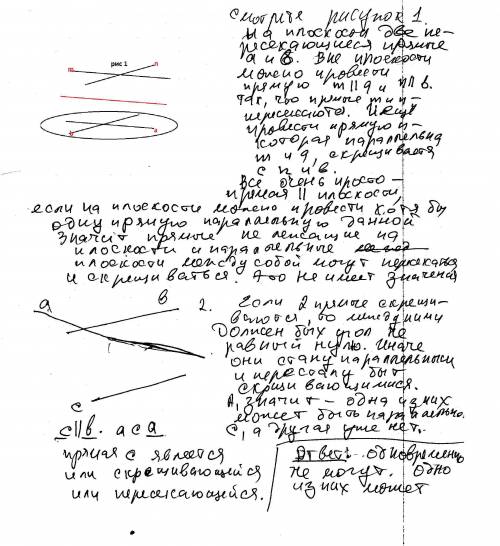 Смотрите рисунок 1.
На плоскости две пе-
ресекающиеся прямые
а и в. Вне плоскости
можно провести
прямую m || а и n || в.
так, что прямые m и n -
пересекаются. И ещё
провести прямую
которая параллельна
m и а, скрещивается
с n и в.
Все очень просто -
прямая || плоскости,
рис 1
m
n
в
а
если на плоскости можно провести хотя бы
одну прямую параллельную данной
Значит прямые не лежащие на
плоскости и параллельные
плоскости между собой могут пересекаться
и скрещиваться. Это не имеет значения
а
в
с
2. Если 2 прямые скрещи-
ваются, то между ними
должен быть угол не
равный нулю. Иначе
они стану параллельными
и перестану быт
скрещивающимися.
А, значит - одна из них
может быть параллельно
с, а другая уже нет.
c || b. a c a
прямая с является
или скрещивающейся
или пересекающейся.
Ответ: одновременно
не могут. Одно
из них может